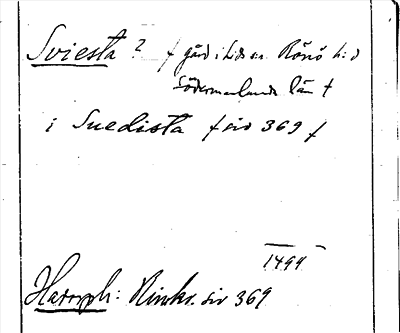 Sviesta ? / gård i Lids sn. Rönö h:d
Södermanlands län /
i Suedista / sid 369 /
1499
Harnph: Rimkr. sid 369